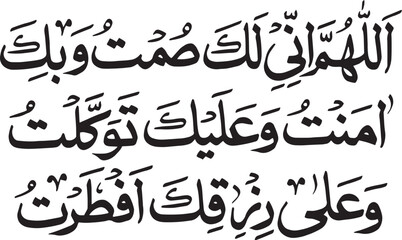 اَللّٰهُمَّ اِنِّیْ لَکَ صُمْتُ وَبِکَ
اٰمَنْتُ وَعَلَیْکَ تَوَکَّلْتُ
وَعَلٰی رِزْقِکَ اَفْطَرْتُ